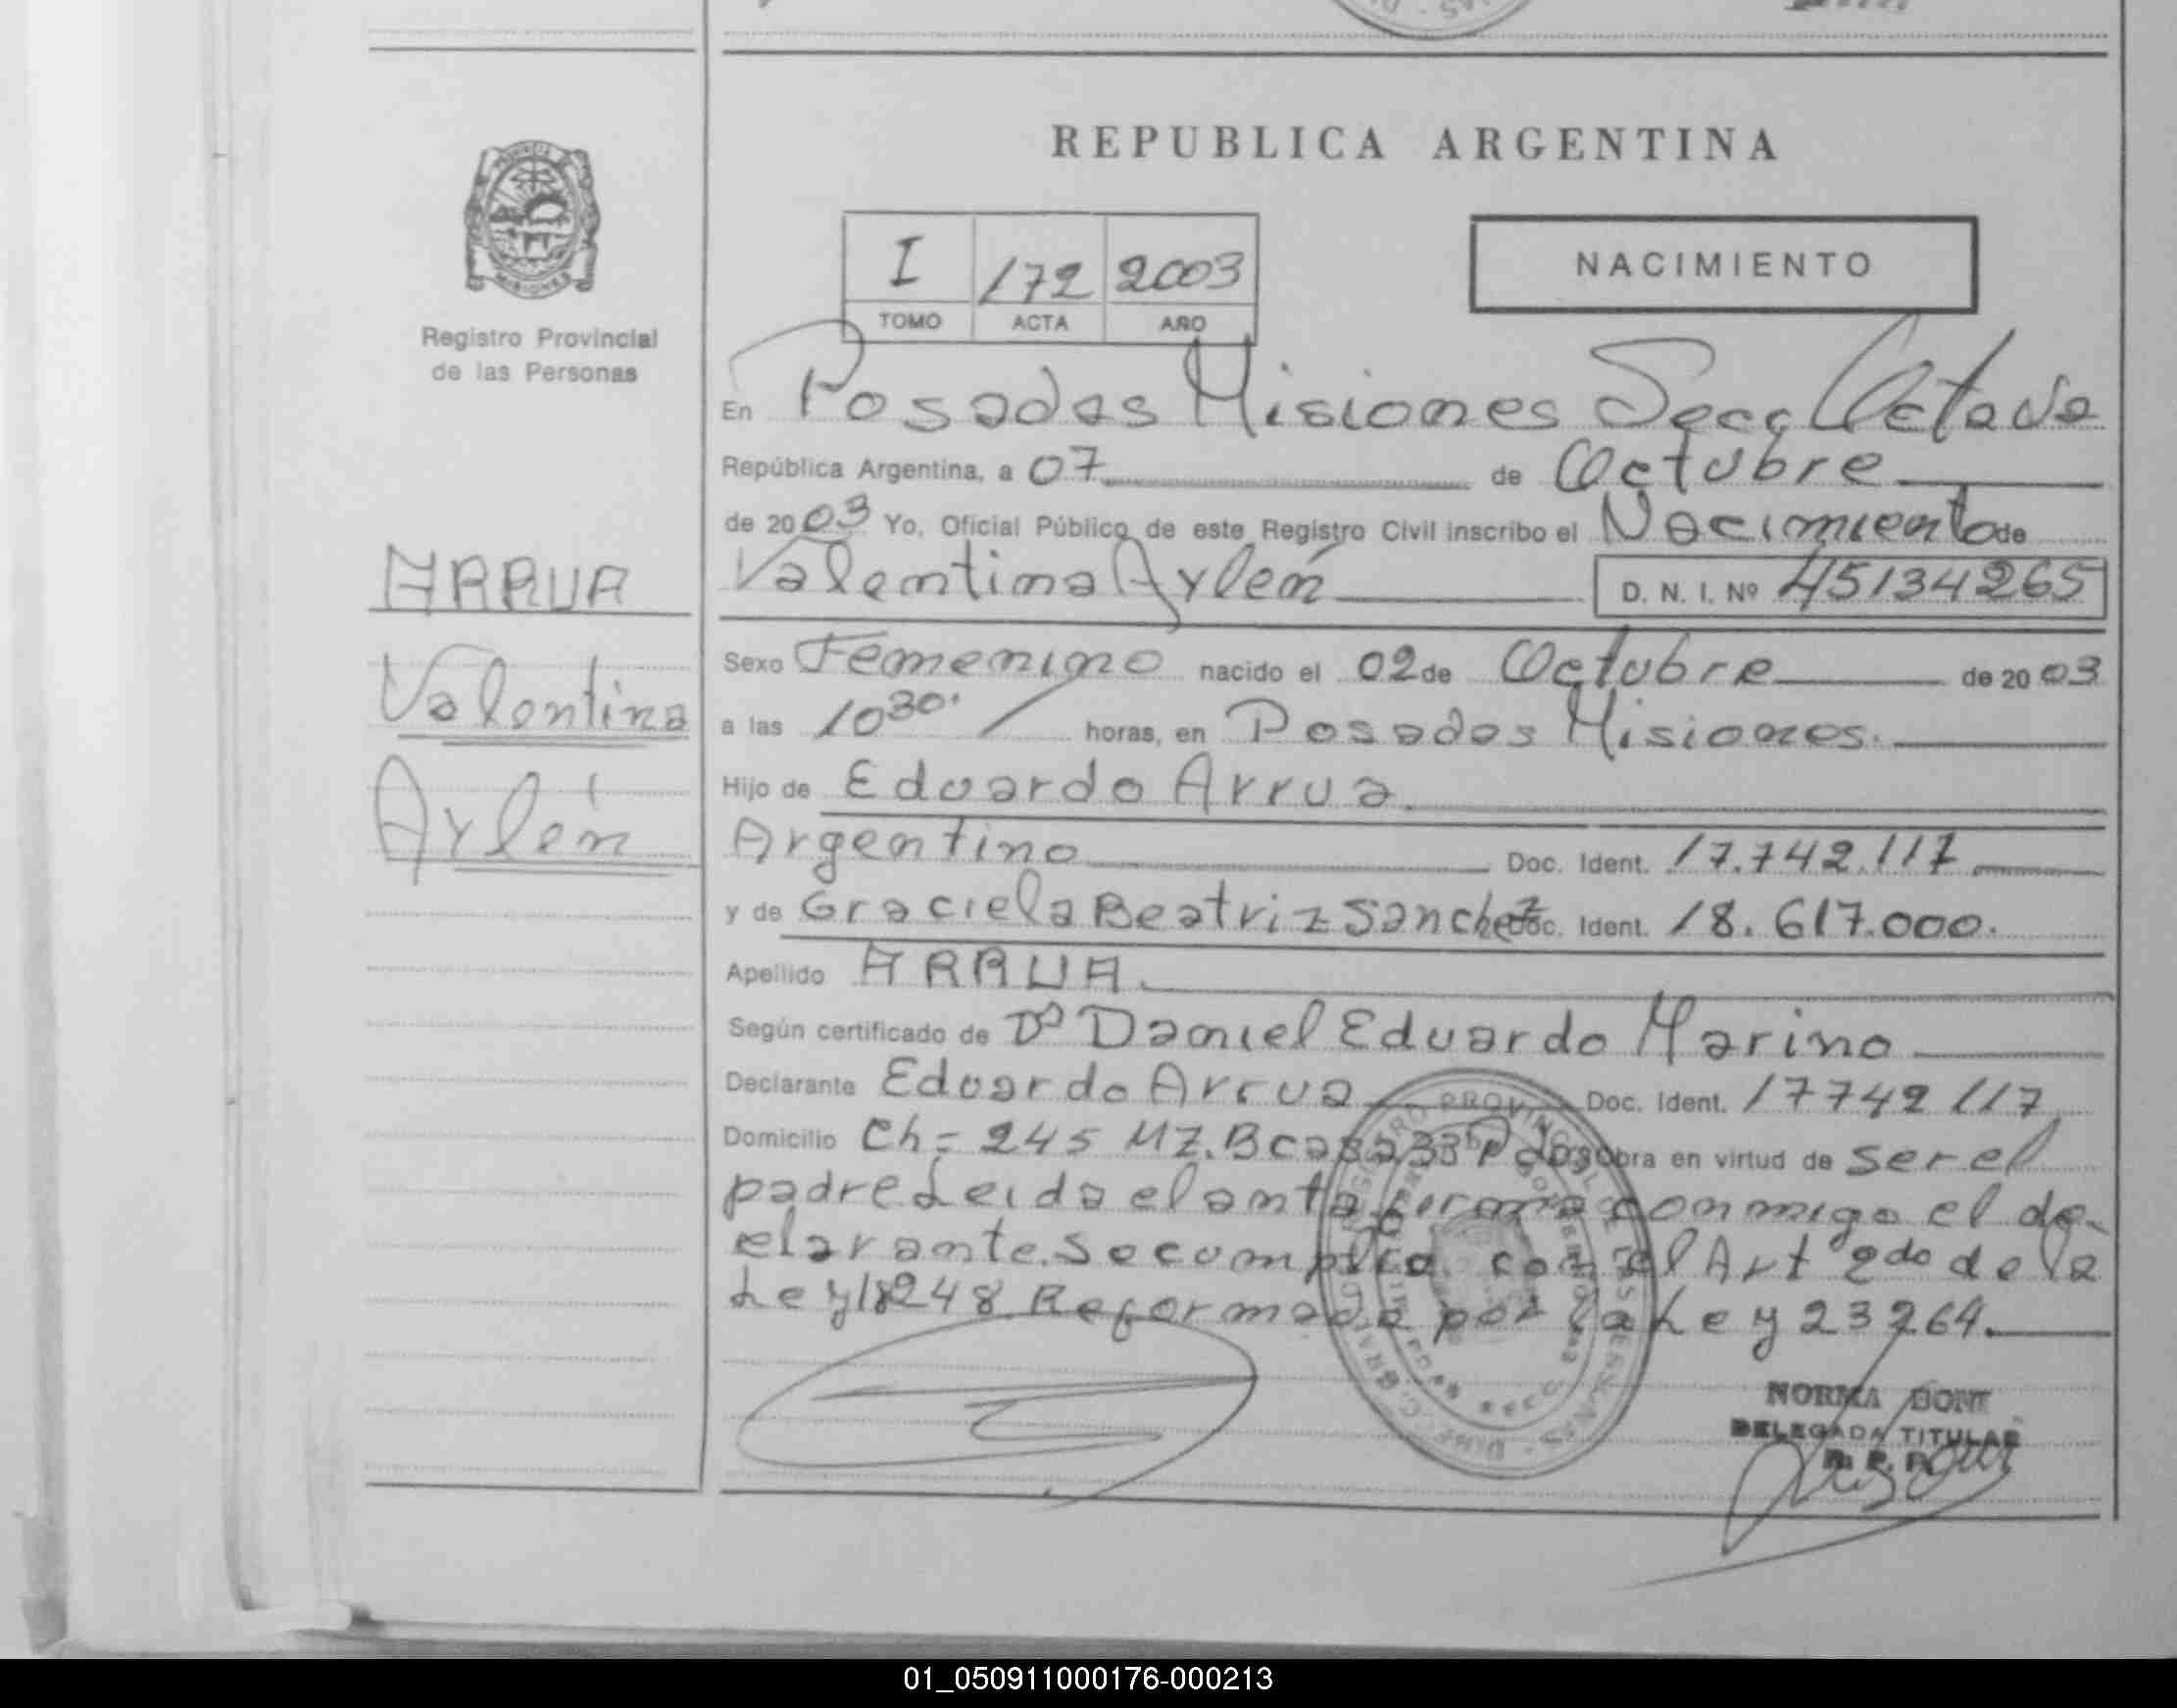 REPUBLICA ARGENTINA
I
172
2003
TOMO
ACTA
AÑO
NACIMIENTO
Registro Provincial
de las Personas
ARRUA
Valentina
Aylén
En Posadas Misiones Secc Octava
República Argentina, a 07 de Octubre
de 2003 Yo, Oficial Público de este Registro Civil inscribo el Nacimiento de
Valentina Aylén D. N. I. Nº 45134265
Sexo Femenino nacido el 02 de Octubre de 2003
a las 10 30. horas, en Posadas Misiones.
Hijo de Eduardo Arrua.
Argentino Doc. Ident. 17.742.117
y de Graciela Beatriz Sanchez Doc. Ident. 18.617.000.
Apellido ARRUA.
Según certificado de Dº Daniel Eduardo Marino
Declarante Eduardo Arrua Doc. Ident. 17742117
Domicilio Ch= 245 MZ. B casa Pdas Obra en virtud de ser el
padre Leida el anta firma conmigo el de-
clarante. Se cumplio con el Art 2do de la
Ley 18248 Reformada por la Ley 23264.
NORMA BONI
DELEGADA TITULAR
R. P. P.
01_050911000176-000213